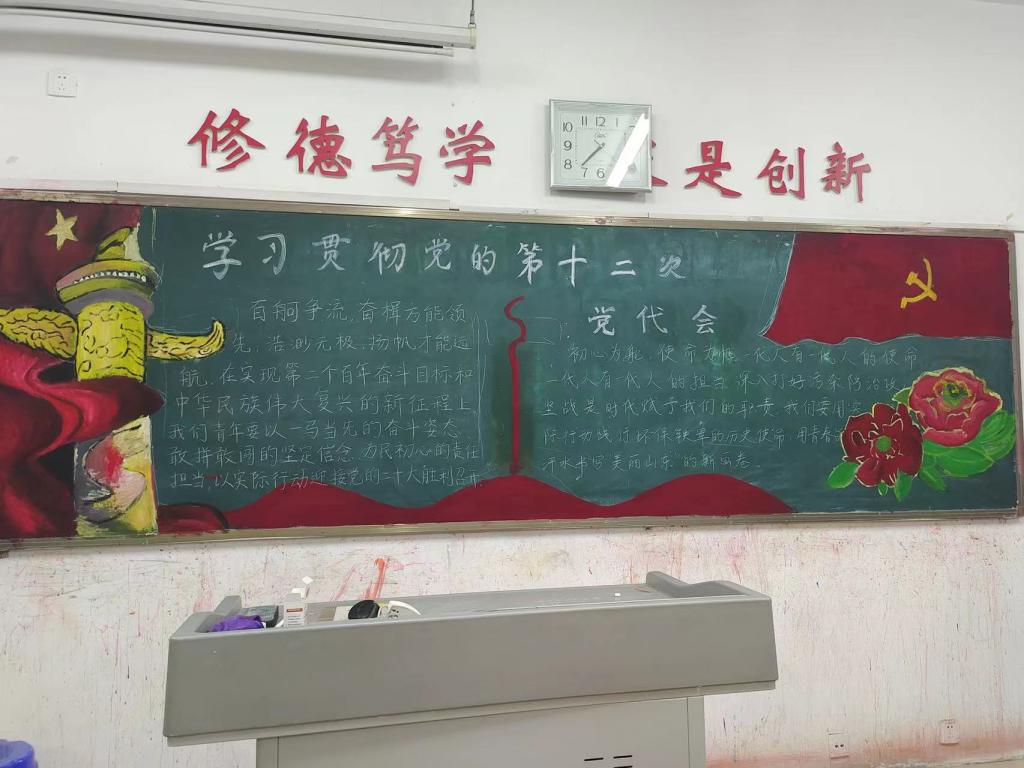 修德笃学 是创新
10 11 12 1
9
8 7 6 5
学习贯彻党的第十二次
党代会
百舸争流,奋楫方能领
先,浩渺无极,扬帆才能远
航,在实现第二个百年奋斗目标和
中华民族伟大复兴的新征程上
我们青年要以一马当先的奋斗姿态
敢拼敢闯的坚定信念,为民初心的责任
担当,以实际行动迎接党的二十大胜利召开.
初心为舵,使命为帆一代人有一代人的使命
一代人有一代人的担当 深入打好污染防治攻
坚战是时代赋予我们的职责,我们要用实
际行动践行环保铁军的历史使命,用青春
汗水书写"美丽山东"的新画卷